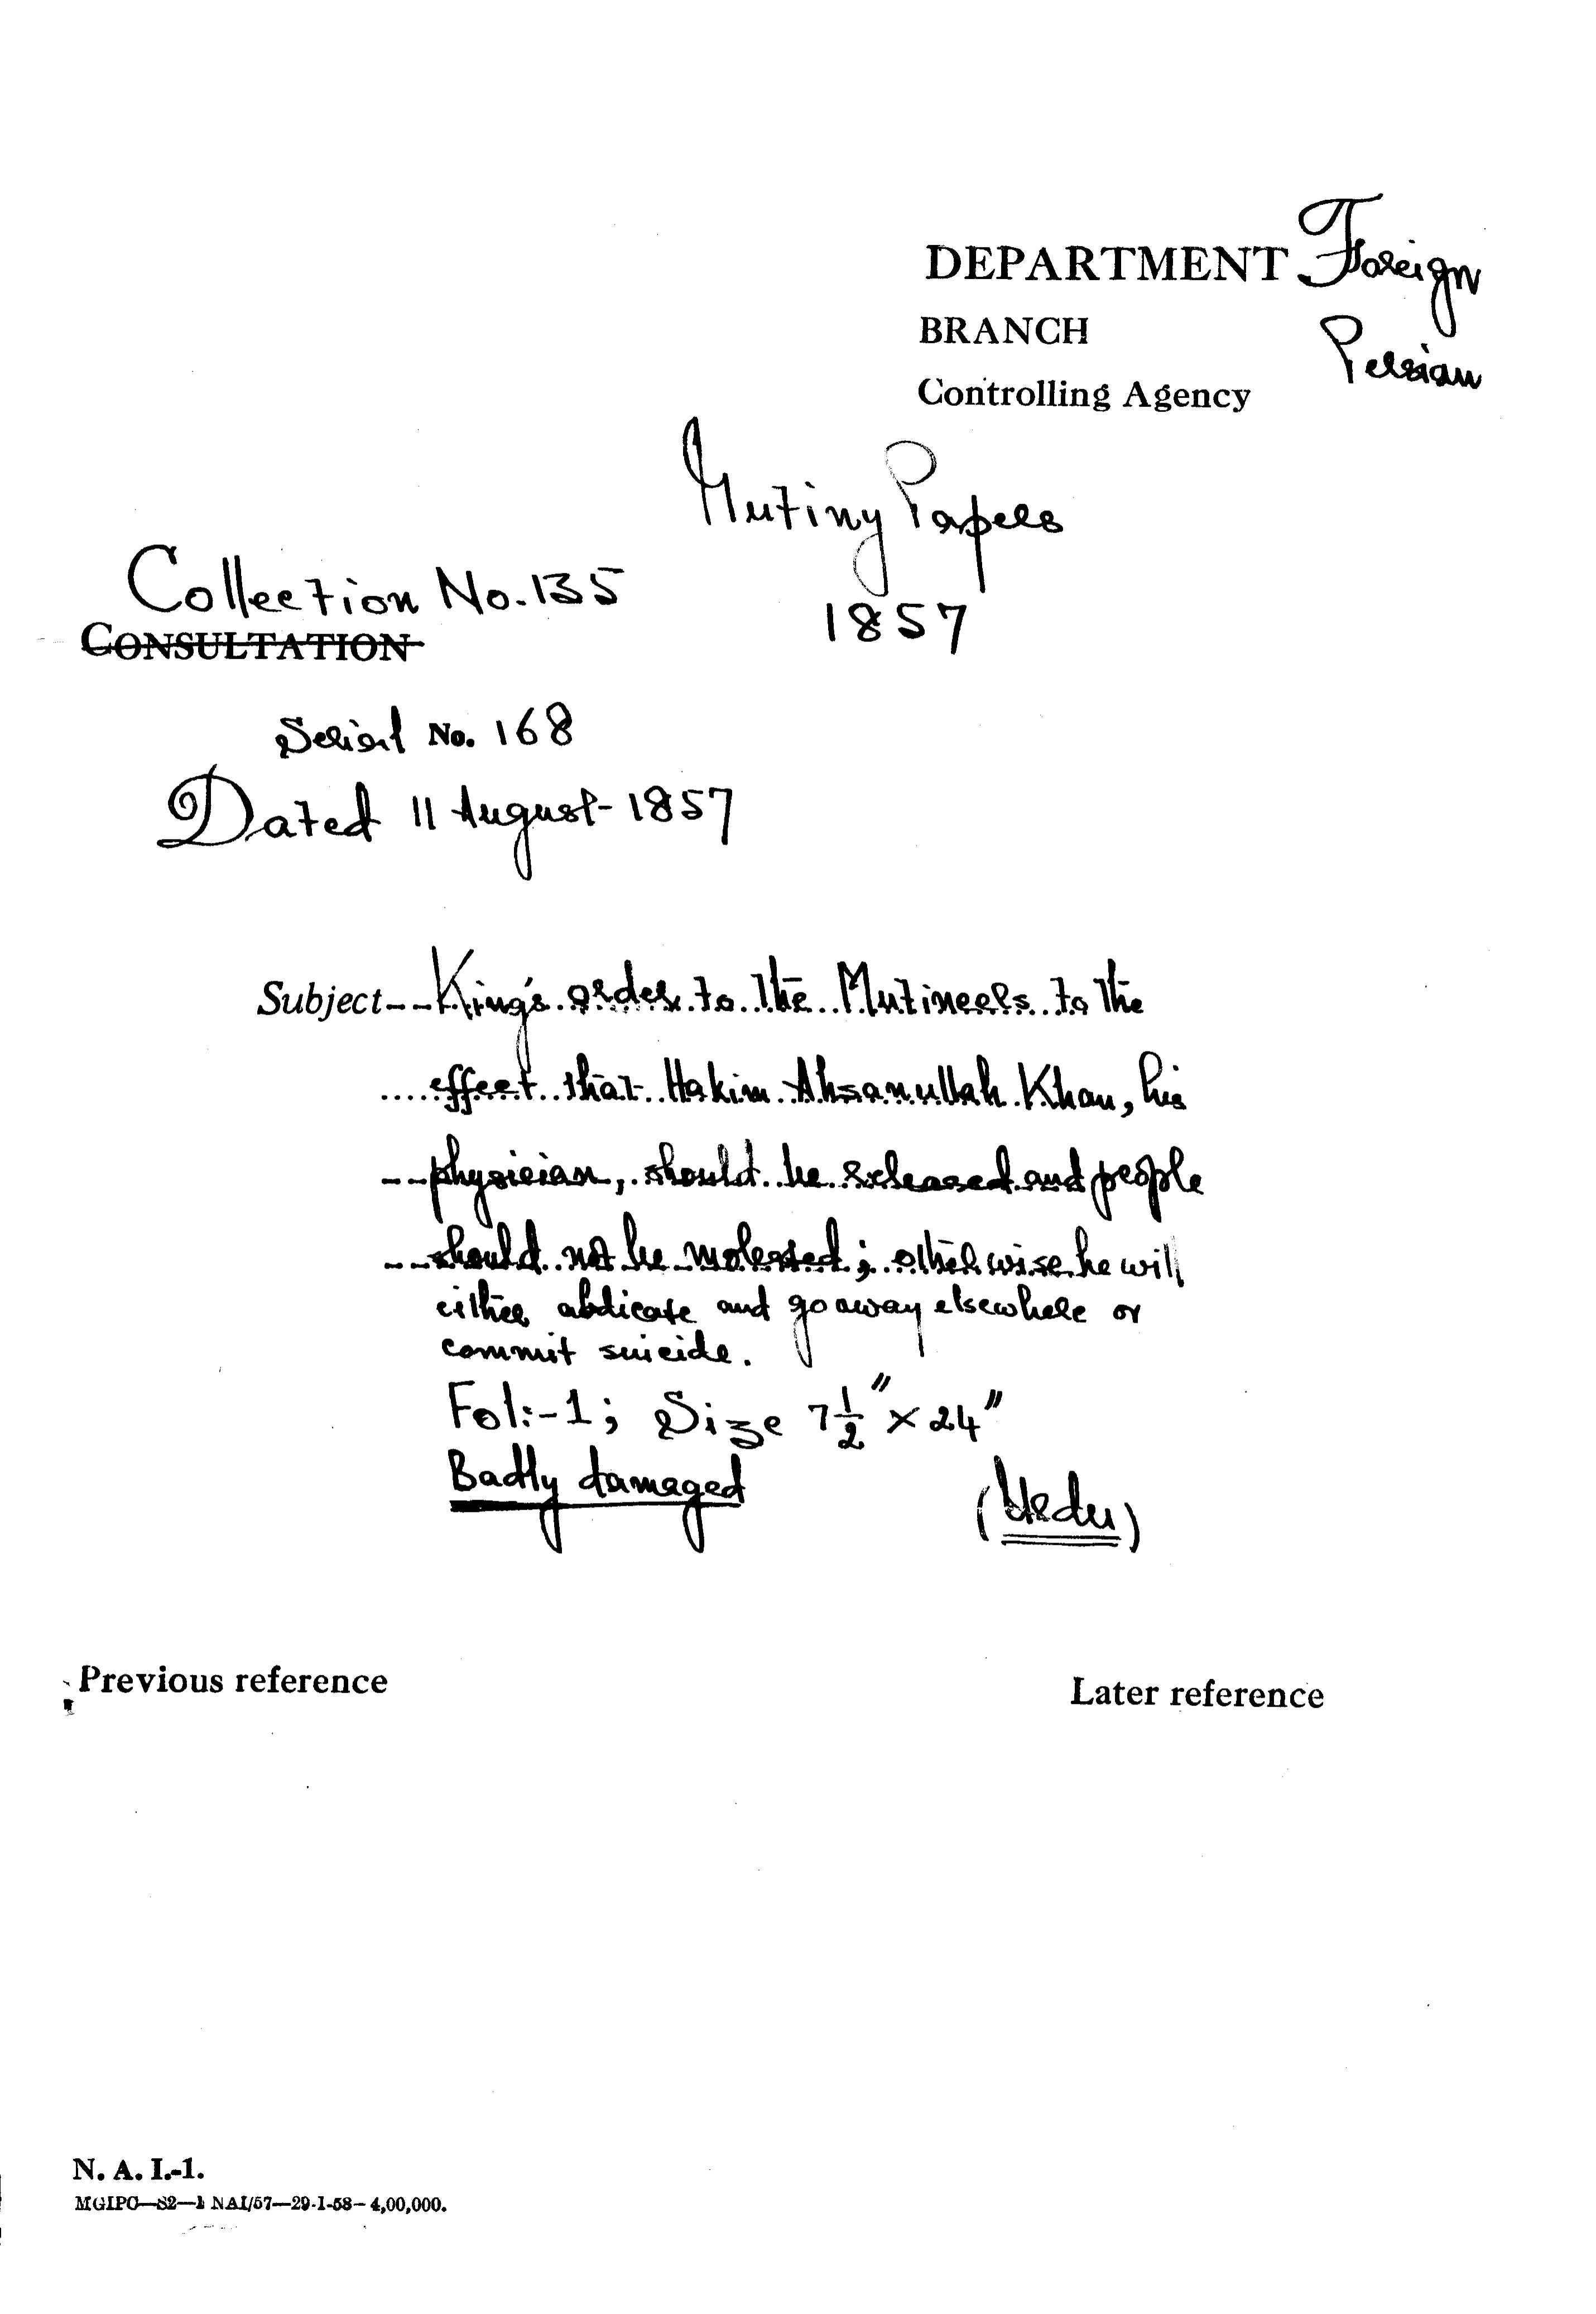 DEPARTMENT Foreign
BRANCH Persian
Controlling Agency
Mutiny Papers
1857
Collection No. 135
CONSULTATION
Serial No. 168
Dated 11 August 1857
Subject King's order to the Mutineers to the
effect that Hakim Ahsanullah Khan, his
physician, should be released and people
should not be molested; otherwise he will
either abdicate and go away elsewhere or
commit suicide.
Fol:-1; Size 7 1/2" × 24"
Badly damaged
(Urdu)
Previous reference
Later reference
N. A. I.-1.
MGIPC—S2—1 NAI/57—29-1-58—4,00,000.